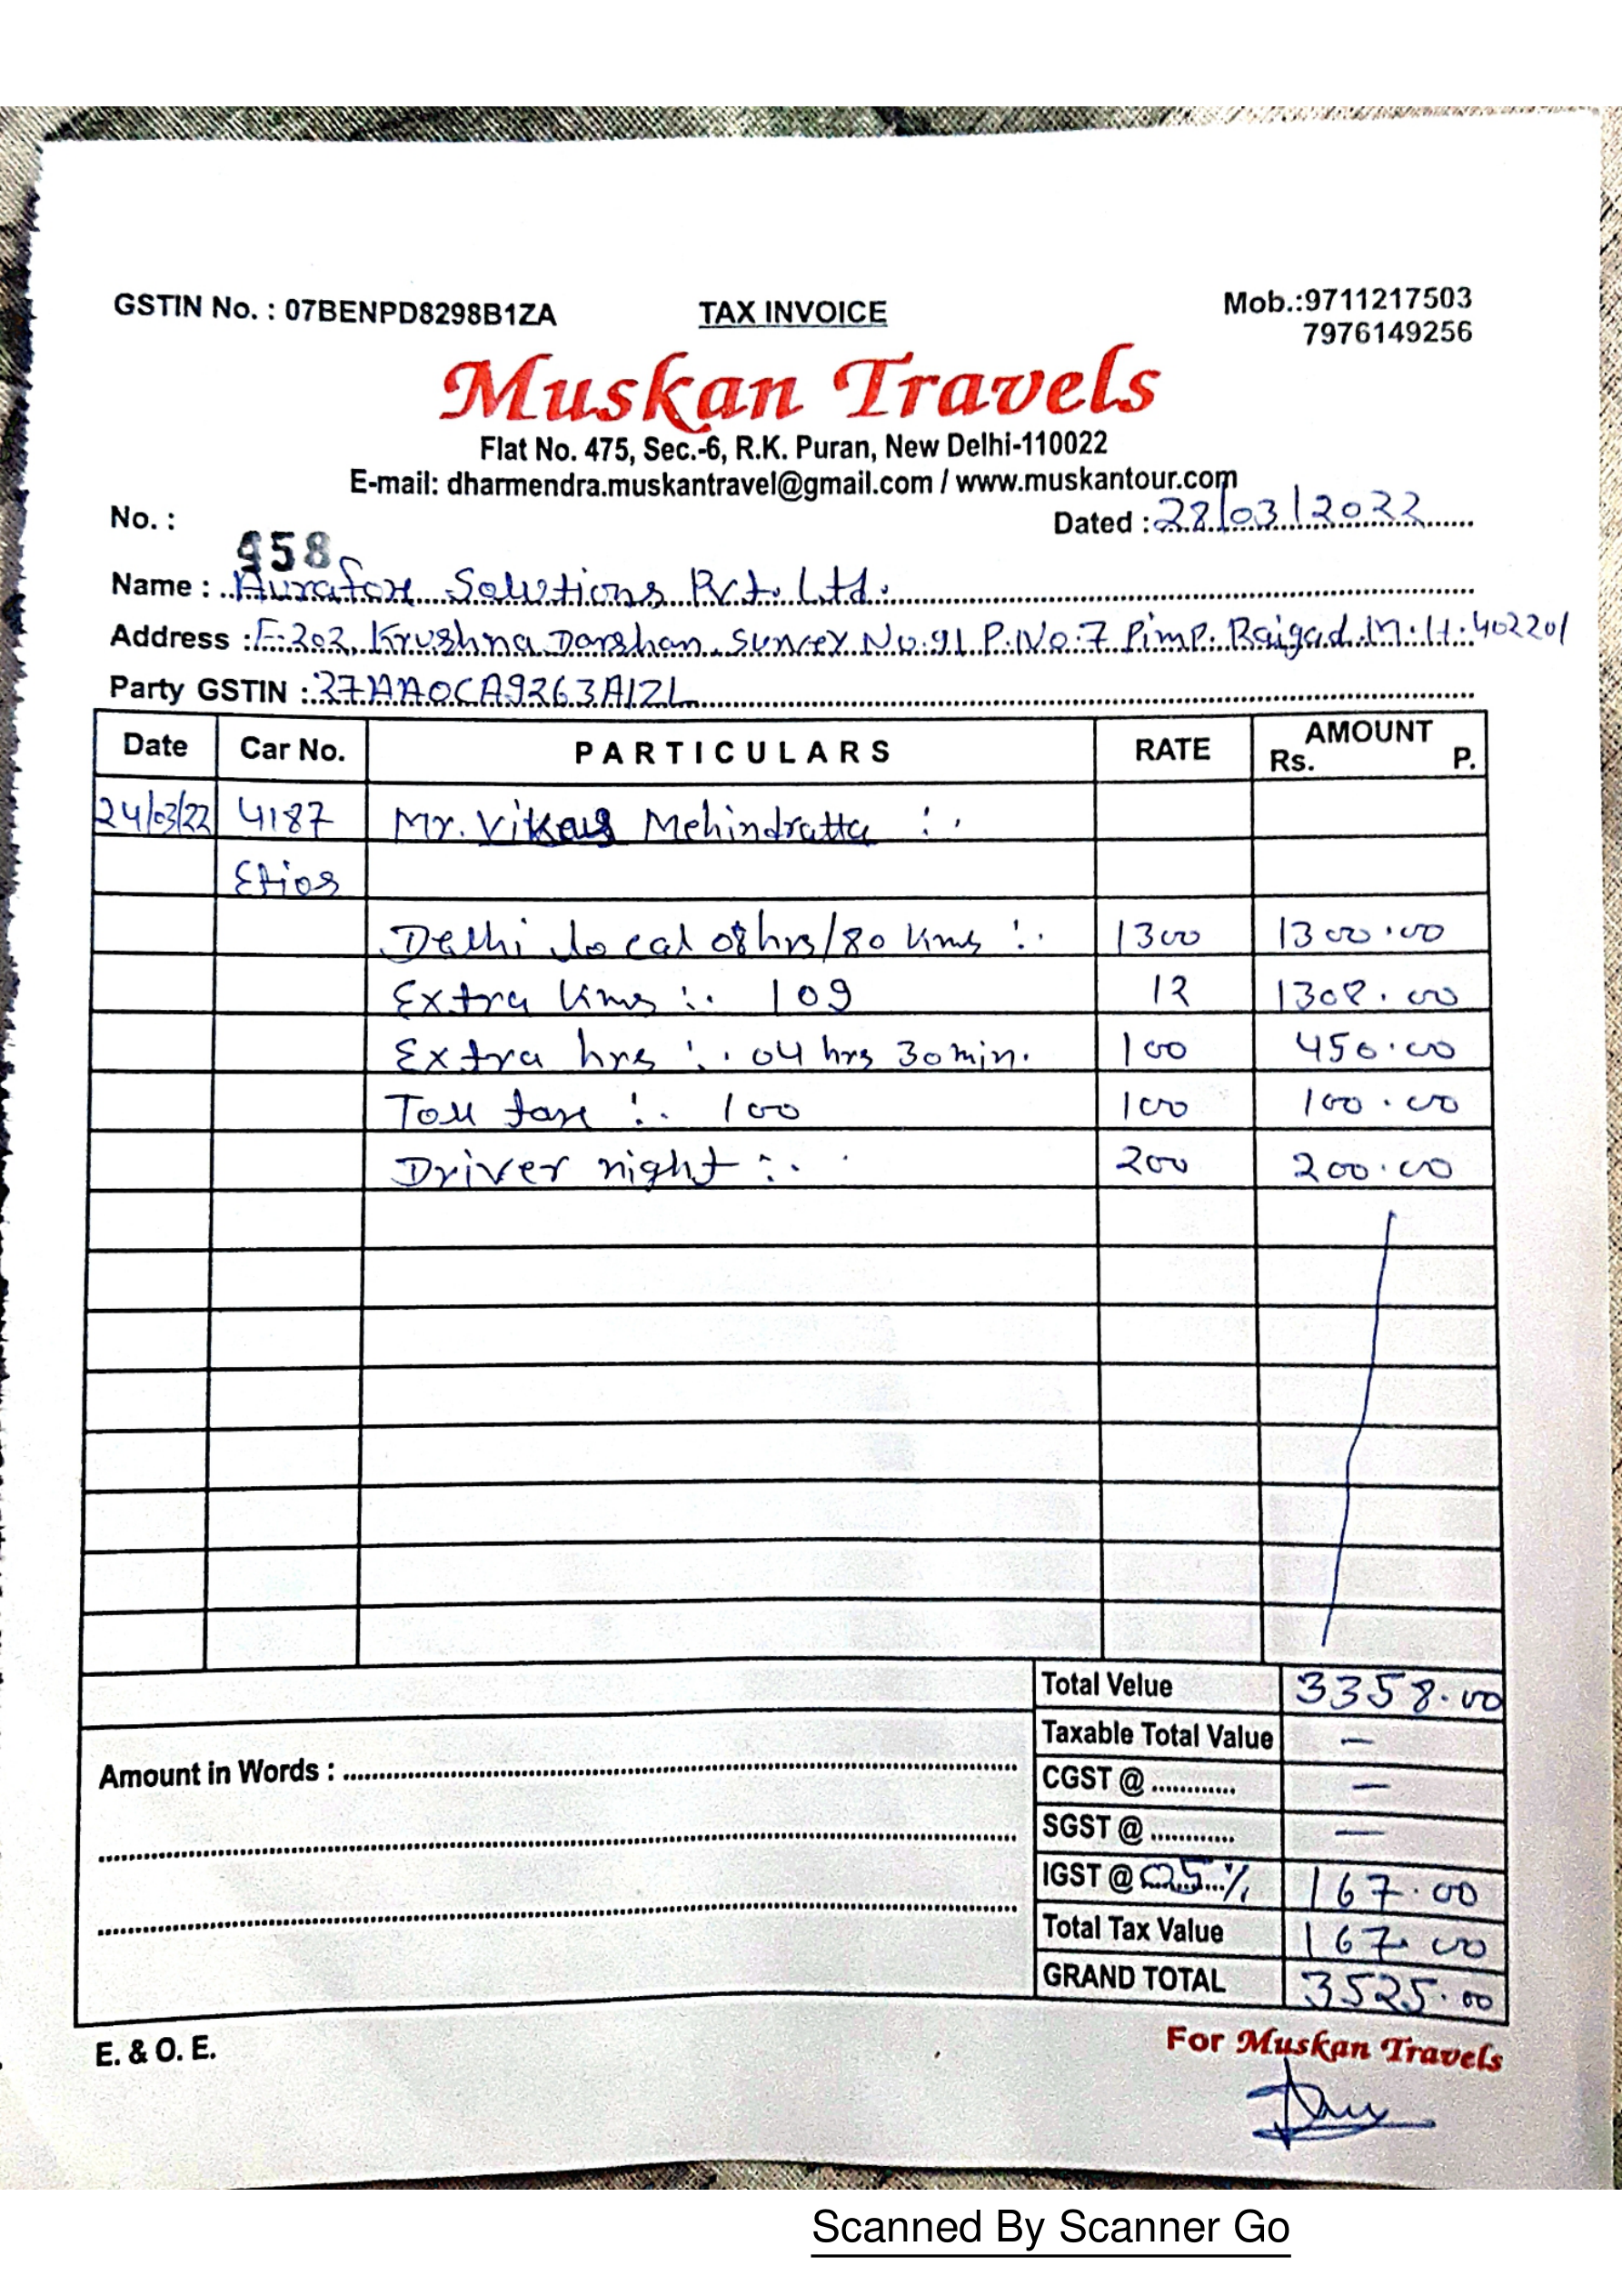 GSTIN No. : 07BENPD8298B1ZA TAX INVOICE Mob.:9711217503
7976149256
Muskan Travels
Flat No. 475, Sec.-6, R.K. Puran, New Delhi-110022
E-mail: dharmendra.muskantravel@gmail.com / www.muskantour.com
No. : 958 Dated : 28/03/2022
Name : Aurafox Solutions Pvt. Ltd.
Address : E-202, Krushna Darshan Survey No:91 P.No:7 Pimp. Raigad M.H. 402201
Party GSTIN : 27AAOCA9263A1ZL
Date Car No. PARTICULARS RATE AMOUNT
Rs. P.
24/03/22 4187 Mr. Vikas Mehindratta :.
Etios
Delhi local 08hrs/80 kms :. 1300 1300.00
Extra kms :. 109 12 1308.00
Extra hrs :. 04 hrs 30 min. 100 450.00
Toll tax :. 100 100 100.00
Driver night :. 200 200.00
Total Velue 3358.00
Taxable Total Value —
Amount in Words :
CGST @ ............ —
SGST @ ............ —
IGST @ 05% 167.00
Total Tax Value 167.00
GRAND TOTAL 3525.00
E. & O. E.
For Muskan Travels
Scanned By Scanner Go